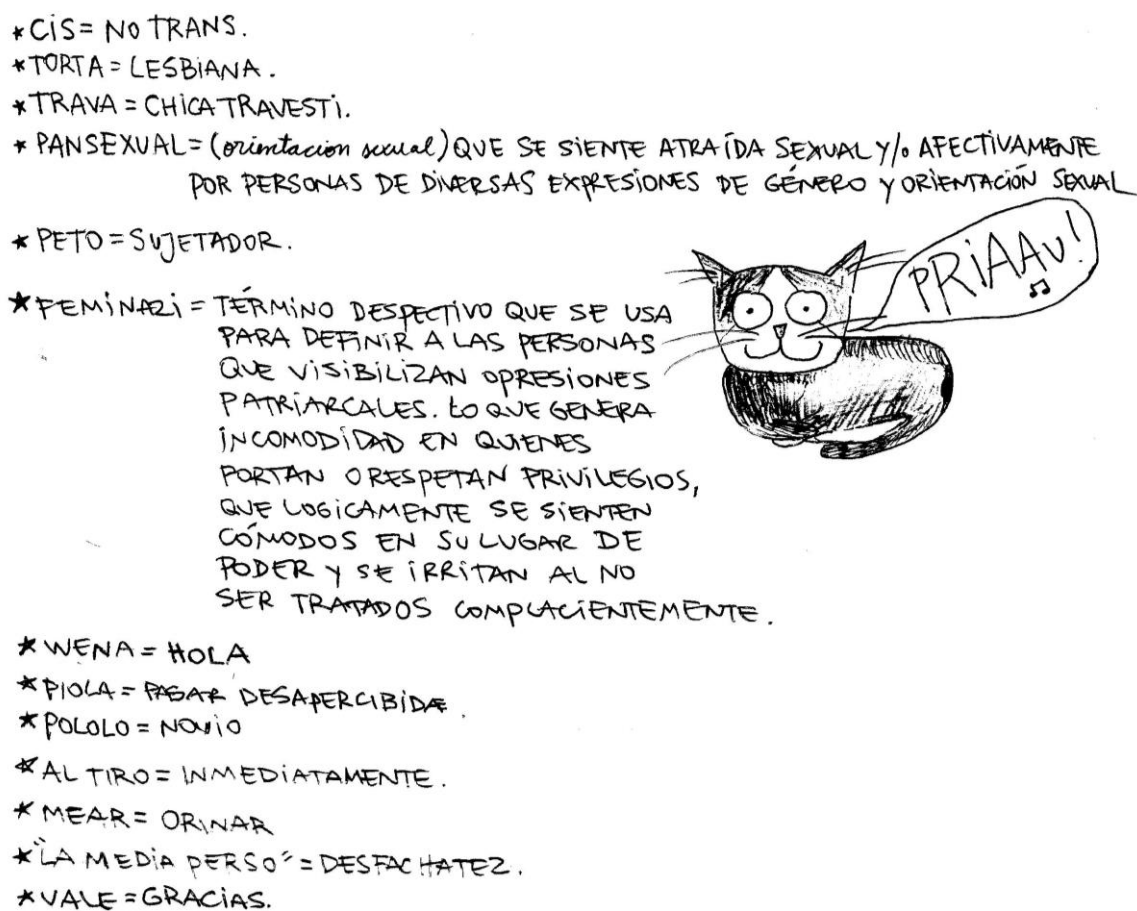 *CiS= NO TRANS.
*TORTA=LESBiANA.
*TRAVA = CHiCA TRAVESTi.
* PANSEXUAL= (orientacion sexual) QUE SE SiENTE ATRAÍDA SEXUAL Y/o AFECTiVAMENTE
POR PERSONAS DE DiVERSAS EXPRESiONES DE GÉNERO Y ORiENTACiÓN SEXUAL
* PETO=SUJETADOR.
PRiAAU!
*FEMiNAZi = TÉRMiNO DESPECTiVO QUE SE USA
PARA DEFiNiR A LAS PERSONAS
QUE ViSiBiLiZAN OPRESiONES
PATRiARCALES. LO QUE GENERA
iNCOMODiDAD EN QUiENES
PORTAN O RESPETAN PRiViLEGiOS,
QUE LOGiCAMENTE SE SiENTEN
CÓMODOS EN SU LUGAR DE
PODER Y SE iRRiTAN AL NO
SER TRATADOS COMPLACiENTEMENTE.
*WENA= HOLA
*PIOLA= PASAR DESAPERCIBiDÆ.
*POLOLO= NOViO
*AL TIRO= INMEDiATAMENTE.
* MEAR= ORiNAR
*"LA MEDiA PERSO"=DESFACHATEZ.
*VALE=GRACiAS.